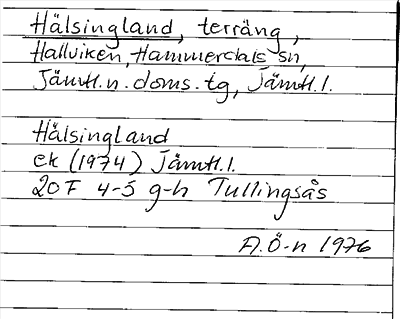 Hälsingland, terräng,
Hallviken, Hammerdals sn,
Jämtl.n.doms.tg, Jämtl.l.
Hälsingland
ek (1974) Jämtl.l.
20F 4-5 g-h Tullingsås
A.Ö-n 1976